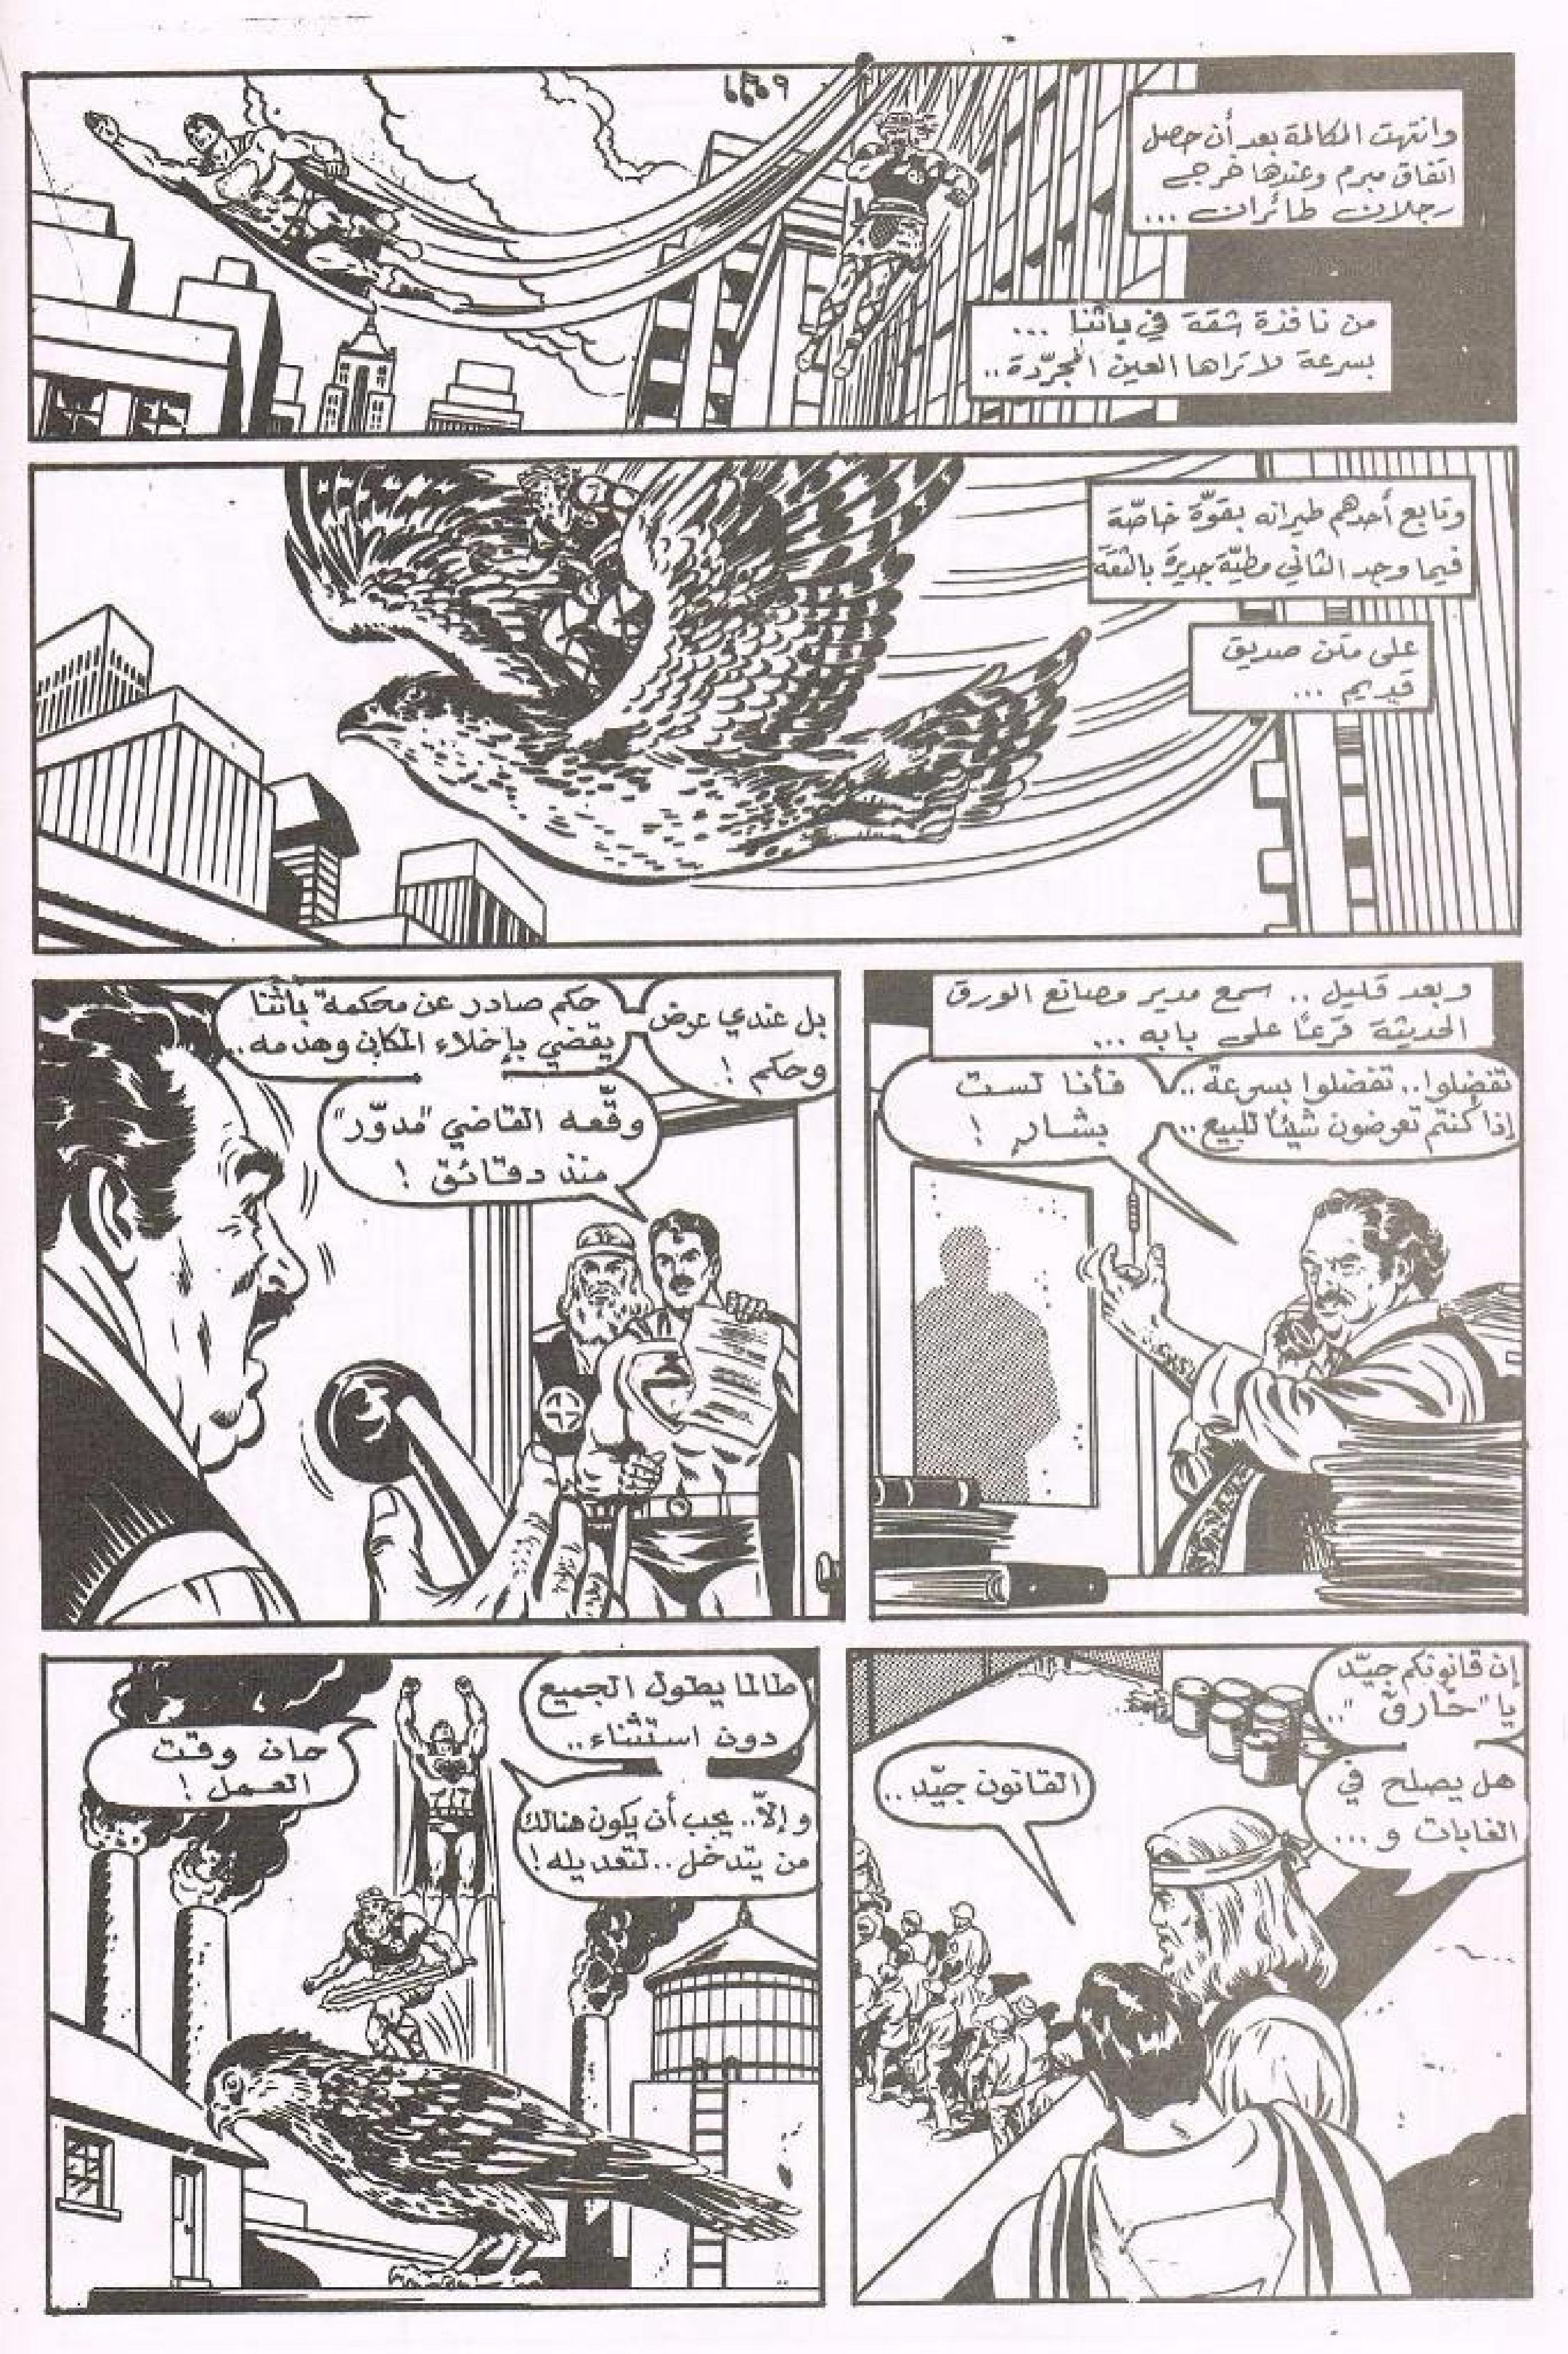 وانتهت المكالمة بعد أن حصل
اتفاق مبرم وعندها خرج
رجلان طائران ...
من نافذة شقة في باثنا ...
بسرعة لا تراها العين المجرّدة ..
وتابع أحدهم طيرانه بقوّة خاصّة
فيما وجد الثاني مطيّة جديرة بالثقة
على متن صديق
قديم ...
وبعد قليل .. سمع مدير مصانع الورق
الحديثة قرعًا على بابه ...
تفضلوا.. تفضلوا بسرعة ..
إذا كنتم تعرضون شيئًا للبيع ..
فأنا لست
بشار !
بل عندي عرض
وحكم !
حكم صادر عن محكمة باثنا
يقضي بإخلاء المكان وهدمه ..
وقّعه القاضي "مدوّر"
منذ دقائق !
إن قانونكم جيّد
يا "خارق" ..
هل يصلح في
الغابات و ...
القانون جيّد ..
طالما يطول الجميع
دون استثناء ..
وإلاّ.. يجب أن يكون هنالك
من يتدخل .. لتعديله !
حان وقت
العمل !